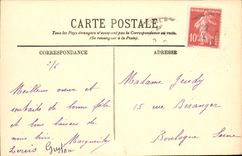 CARTE POSTALE
Tous les pays étrangers n'acceptent pas la Correspondance au recto.
(Se renseigner à la Poste).
CORRESPONDANCE
ADRESSE
10
2/6
Meilleurs
et
souhaits de bonne fête
et bons baisers de
nous trois.
Marguerite
Madame Jendy
15 rue Béranger
Boulogne Seine